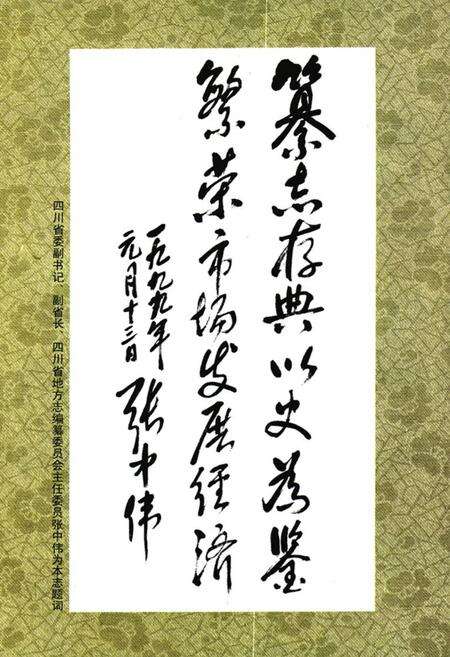 纂志存典以史为鉴
繁荣市场发展经济
一九九九年
元月十三日
张中伟
四川省委副书记、副省长、四川省地方志编纂委员会主任委员张中伟为本志题词